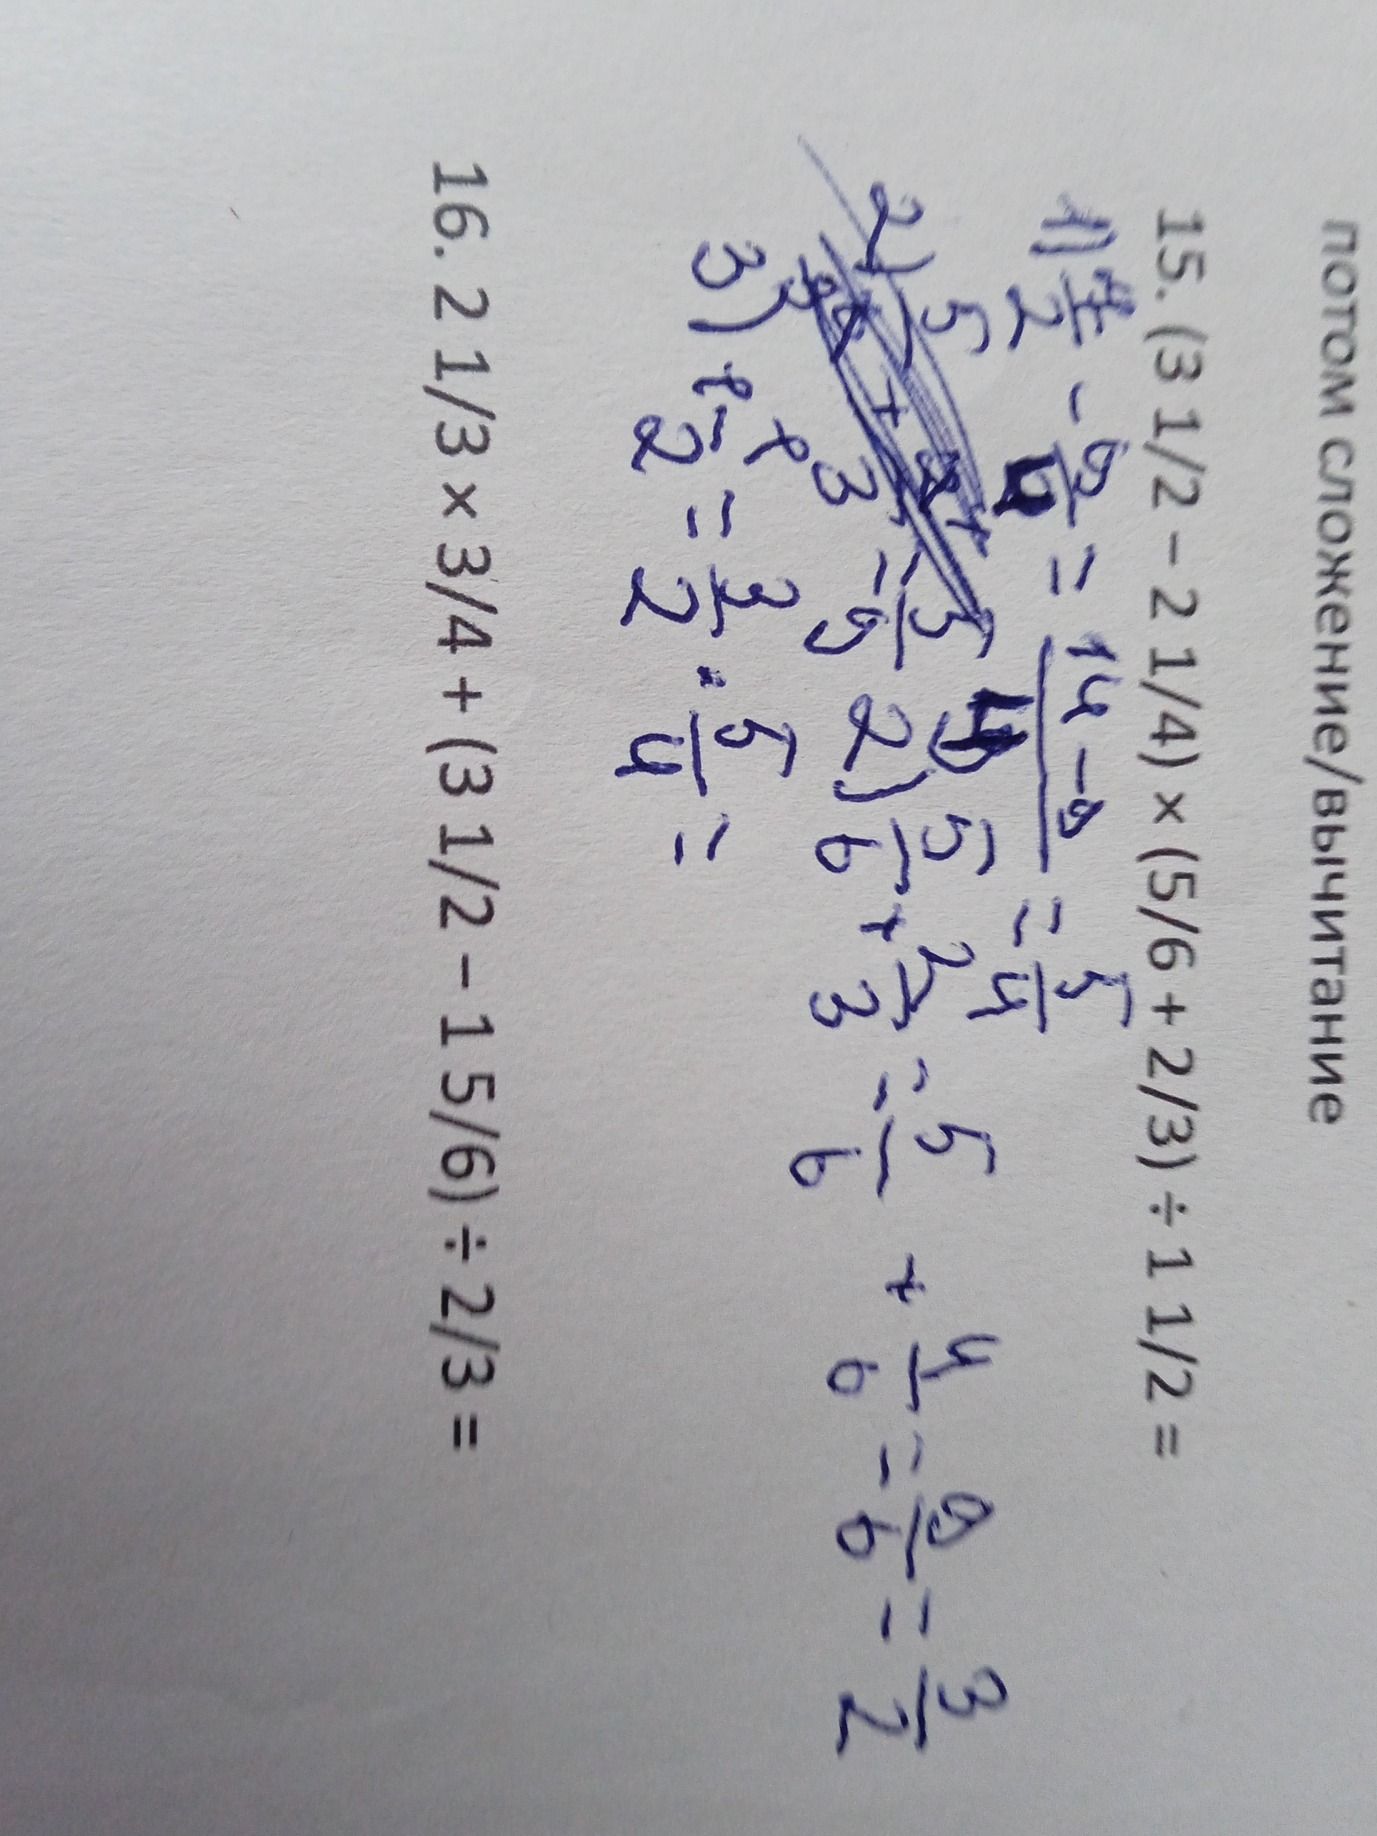 потом сложение/вычитание
15. (3 1/2 – 2 1/4) × (5/6 + 2/3) ÷ 1 1/2 =
1) 7/2 - 9/4 = 14-9/4 = 5/4
2) 5 3 = 5/9 2) 5/6 + 2/3 = 5/6 + 4/6 = 9/6 = 3/2
3) 1 1/2 = 3/2 · 5/4 =
16. 2 1/3 × 3/4 + (3 1/2 – 1 5/6) ÷ 2/3 =